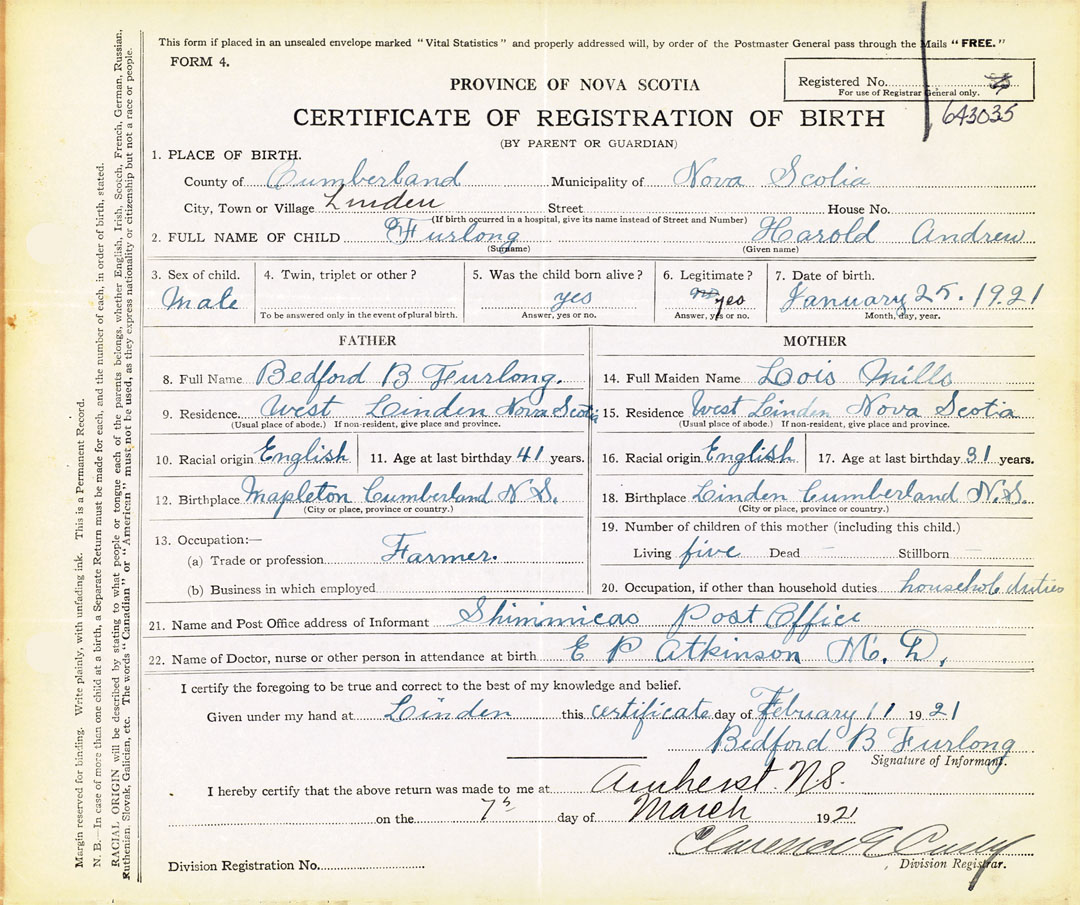 This form if placed in an unsealed envelope marked "Vital Statistics" and properly addressed will, by order of the Postmaster General pass through the Mails "FREE."
FORM 4.
Registered No.
For use of Registrar General only.
643035
PROVINCE OF NOVA SCOTIA
CERTIFICATE OF REGISTRATION OF BIRTH
(BY PARENT OR GUARDIAN)
1. PLACE OF BIRTH.
County of Cumberland Municipality of Nova Scotia
City, Town or Village Linden Street House No.
(If birth occurred in a hospital, give its name instead of Street and Number)
2. FULL NAME OF CHILD Furlong Harold Andrew
(Surname) (Given name)
3. Sex of child. 4. Twin, triplet or other? 5. Was the child born alive? 6. Legitimate? 7. Date of birth.
Male yes yes January 25. 1921
To be answered only in the event of plural birth. Answer, yes or no. Answer, yes or no. Month, day, year.
FATHER MOTHER
8. Full Name Bedford B Furlong. 14. Full Maiden Name Lois Mills
9. Residence. West Linden Nova Scotia 15. Residence West Linden Nova Scotia
(Usual place of abode.) If non-resident, give place and province. (Usual place of abode.) If non-resident, give place and province.
10. Racial origin English 11. Age at last birthday 41 years. 16. Racial origin English 17. Age at last birthday 31 years.
12. Birthplace Mapleton Cumberland N.S. 18. Birthplace Linden Cumberland N.S.
(City or place, province or country.) (City or place, province or country.)
13. Occupation:— 19. Number of children of this mother (including this child.)
(a) Trade or profession Farmer. Living five Dead – Stillborn –
(b) Business in which employed 20. Occupation, if other than household duties household duties
21. Name and Post Office address of Informant Shinmicas Post Office
22. Name of Doctor, nurse or other person in attendance at birth E P Atkinson M. D,
I certify the foregoing to be true and correct to the best of my knowledge and belief.
Given under my hand at Linden this certificate day of February 11 1921
Bedford B Furlong
Signature of Informant.
I hereby certify that the above return was made to me at Amherst. N.S.
on the 7th day of March 1921
Clarence
Division Registrar.
Division Registration No.
Margin reserved for binding. Write plainly, with unfading ink. This is a Permanent Record.
N. B.—In case of more than one child at a birth, a Separate Return must be made for each, and the number of each, in order of birth, stated.
RACIAL ORIGIN will be described by stating to what people or tongue each of the parents belongs, whether English, Irish, Scotch, French, German, Russian,
Ruthenian, Slovak, Galician, etc. The words "Canadian" or "American" must not be used, as they express nationality or citizenship but not a race or people.